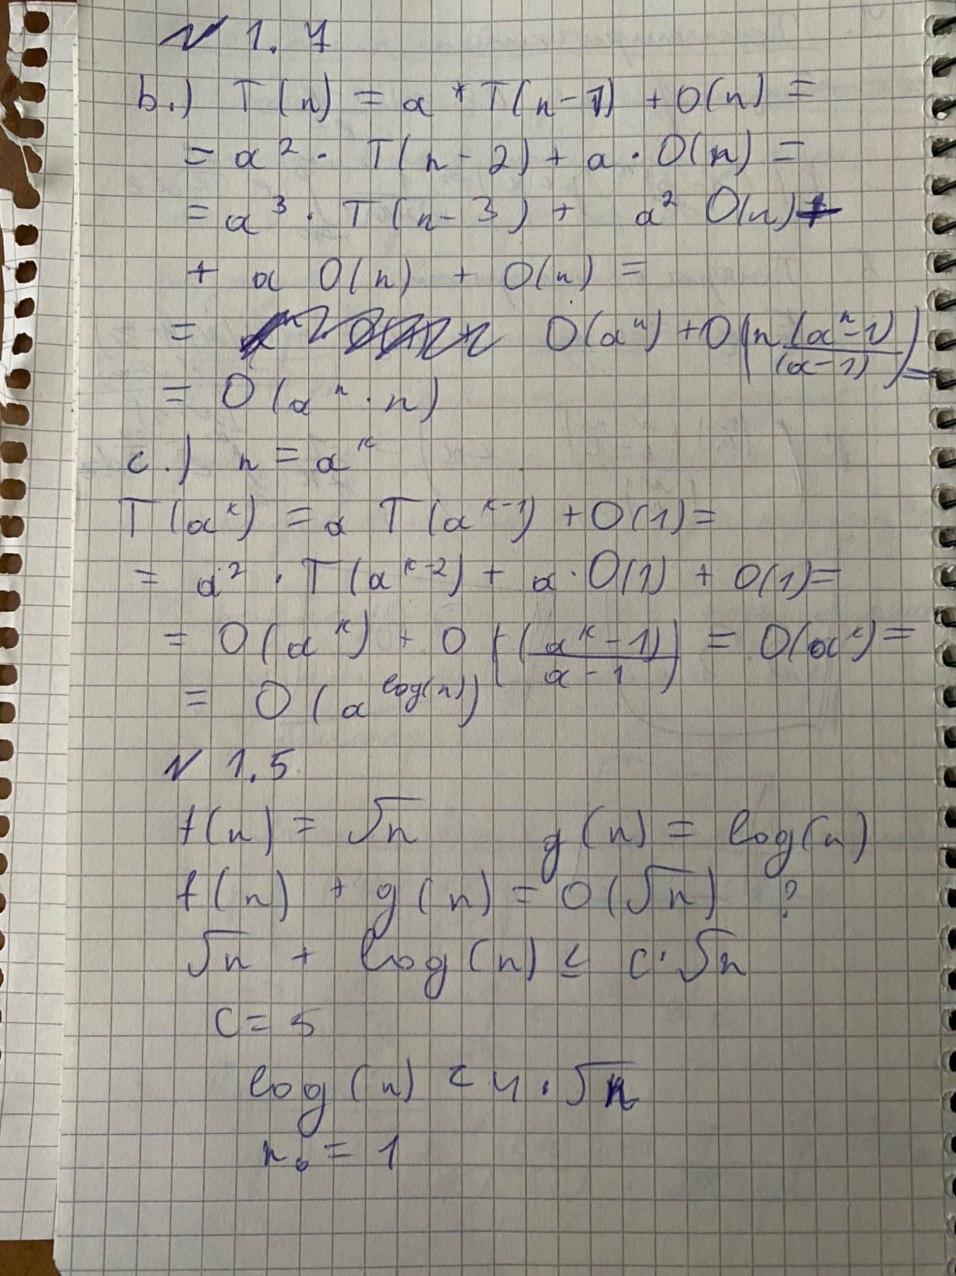 № 1.4
b.) T(n) = a * T(n-1) + O(n) =
= a² · T(n-2) + a · O(n) =
= a³ · T(n-3) + a² O(n) +
+ a O(n) + O(n) =
= O(aⁿ) + O(n (aⁿ-1)/(a-1)) =
= O(aⁿ · n)
c.) n = aᵏ
T(aᵏ) = a T(aᵏ⁻¹) + O(1) =
= a² · T(aᵏ⁻²) + a · O(1) + O(1) =
= O(aᵏ) + O((aᵏ-1)/(a-1)) = O(aᵏ) =
= O(a^log(n))
№ 1.5
f(n) = √n g(n) = log(n)
f(n) + g(n) = O(√n) ?
√n + log(n) ≤ c · √n
C = 5
log(n) < 4 · √n
n₀ = 1